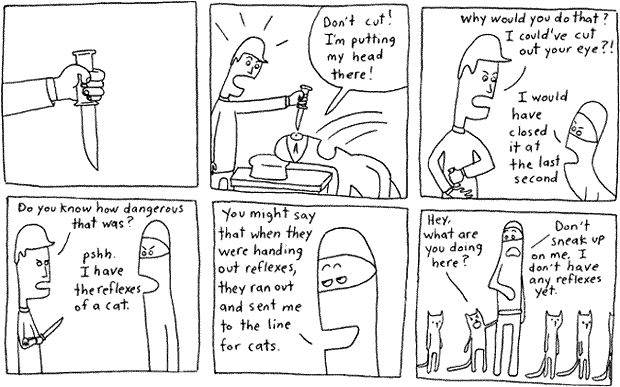 Don't cut!
I'm putting
my head
there!
Why would you do that?
I could've cut
out your eye?!
I would
have
closed
it at
the last
second
Do you know how dangerous
that was?
pshh.
I have
the reflexes
of a cat.
You might say
that when they
were handing
out reflexes,
they ran out
and sent me
to the line
for cats.
Hey,
what are
you doing
here?
Don't
sneak up
on me. I
don't have
any reflexes
yet.